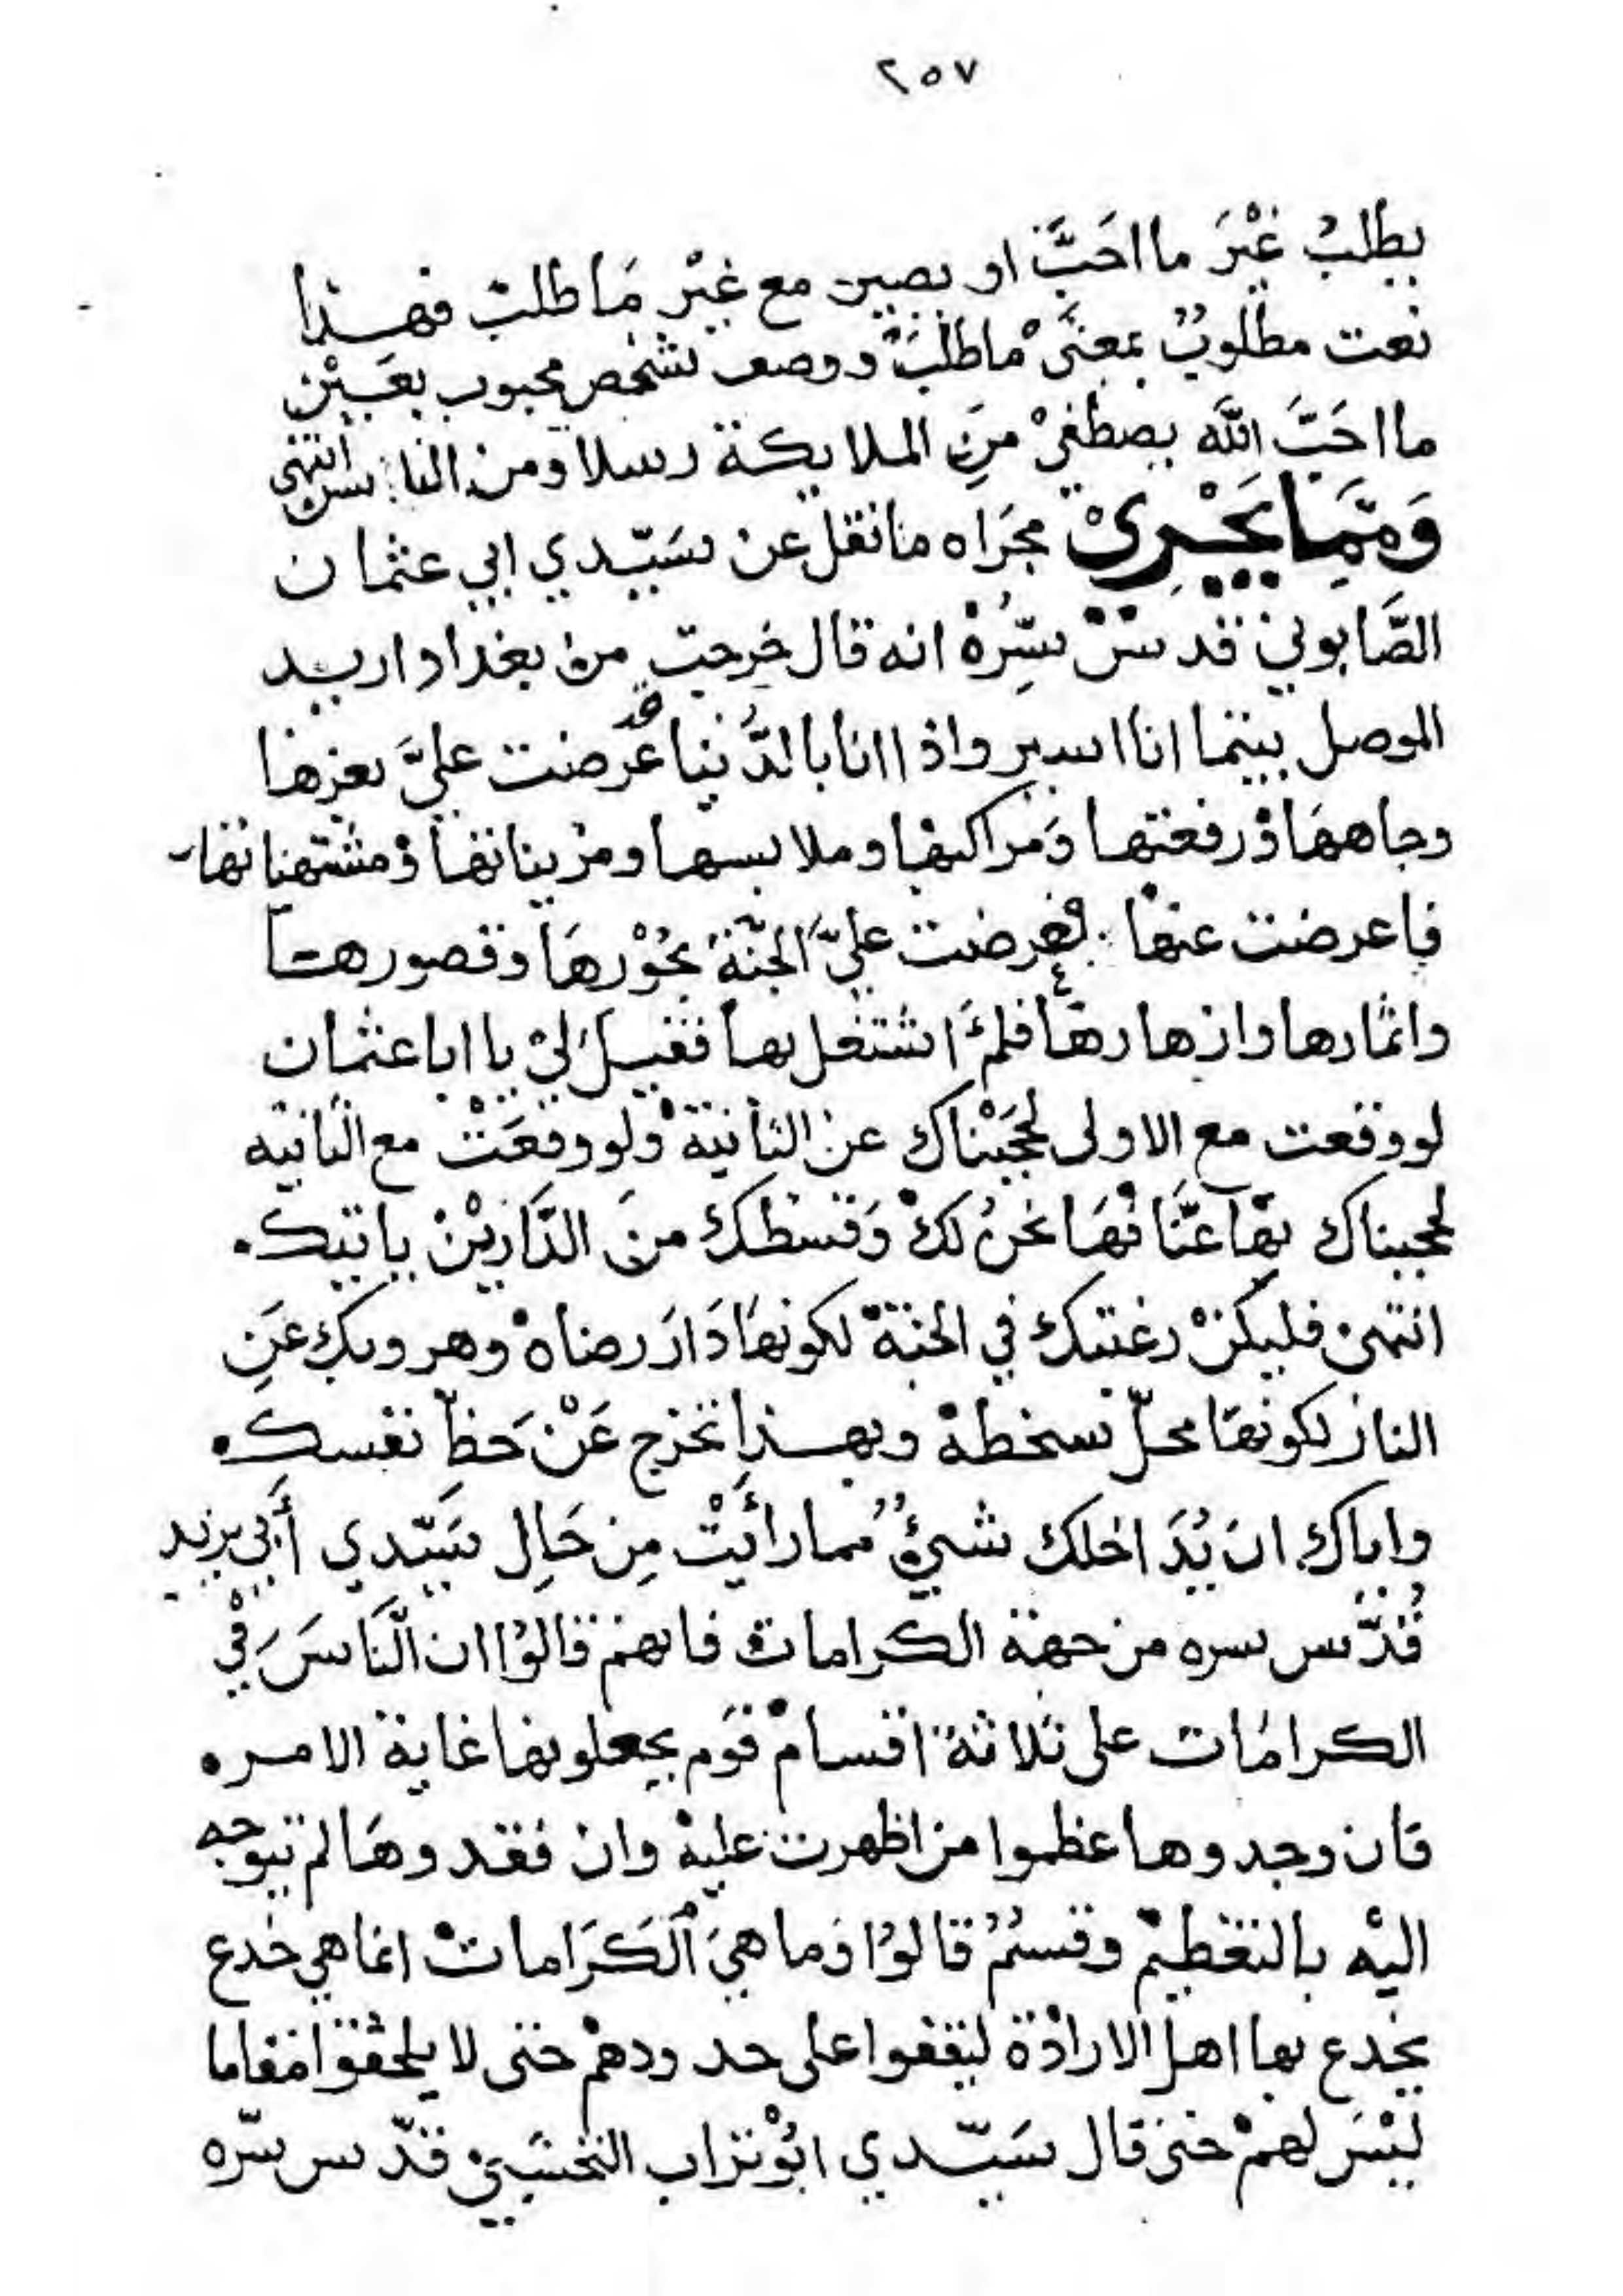 ٢٥٧
يطلبُ غَيْرَ ما احَبَّ او يصير مع غَيْر مَا طلبْ فهذا
نعت مطلوبٌ بمعنَى ما طلبَ ووصف شخص محبوب بعَيْن
ما احَبَّ اللَّه يصطفيْ منَ الملايكة رسلا ومن الناس انتهى
وَمِمَّا يَجْرِيْ مجَراه ما نقل عن سَيّدي ابي عثمان
الصَّابوني قدس سِّرُهْ انه قال خرجت من بغداد اريد
الموصل بينما انا اسير واذا انا بالدُّنيا قد عرضت عليَّ بعزها
وجاههَا ورفعتها وَمراكبها وملابسها ومزيناتها ومشتهياتها
فاعرضت عنها فعرضت عليَّ الجنَّة بحُوْرهَا وقصورها
واثمارها وازهارها فلمْ اشتغل بها فقيل ليْ يا ابا عثمان
لو وقعت مع الاولى لحجَبْناك عن الثانية ولو وقعَتْ مع الثانيه
لحجبناك بها عنَّا فهَا نحنُ لكْ وَقسطكْ منَ الدَّارَيْن ياتيك
انتهى فليكنْ رغبتك في الجنة لكونهَا دَارَ رضاهْ وهروبك عَنِ
النار لكونهَا محلّ سخطهْ وبهذا تخرج عَنْ حَظِّ نفسك
واياك ان يُدَاخلك شيءٌ مما رأيْتْ مِن حَالِ سَيّدي أبي يزيد
قُدّس سره من جهة الكرامات فانهم قالوُا ان النَّاسَ في
الكرامَات على ثلاثة اقسامْ قوَم يجعلونها غاية الامر
فان وجدوها عظموا من اظهرت عليهْ وان فقدوهَا لم تتوجه
اليْه بالتعظيمْ وقسمُ قالوُا وَما هيَ ٱلكَرَامات انما هي خدع
يخدع بها اهل الارادَة ليقفوا على حدودهمْ حتى لا يلحقوا مقاما
ليْسَ لهمْ حتى قال سَيّدي ابُوْ تراب النخشَبيْ قدّس سّره